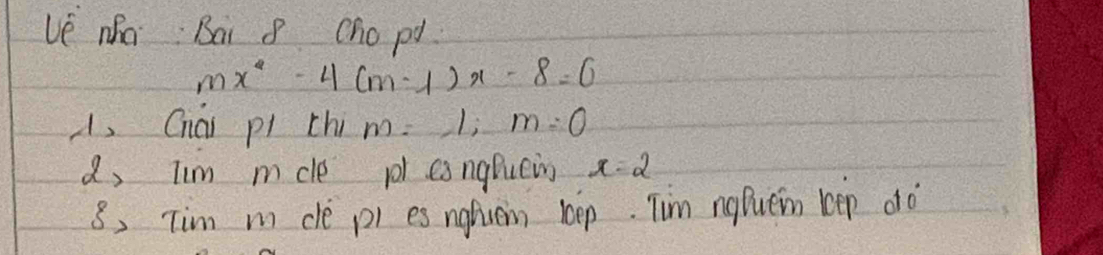 Về nhà : Bài 8 Cho pt
mx² - 4(m-1)x - 8 = 0
1, Giải pt khi m = 1; m = 0
2, Tìm m để pt có nghiệm x = 2
3, Tìm m để pt có nghiệm kép. Tìm nghiệm kép đó